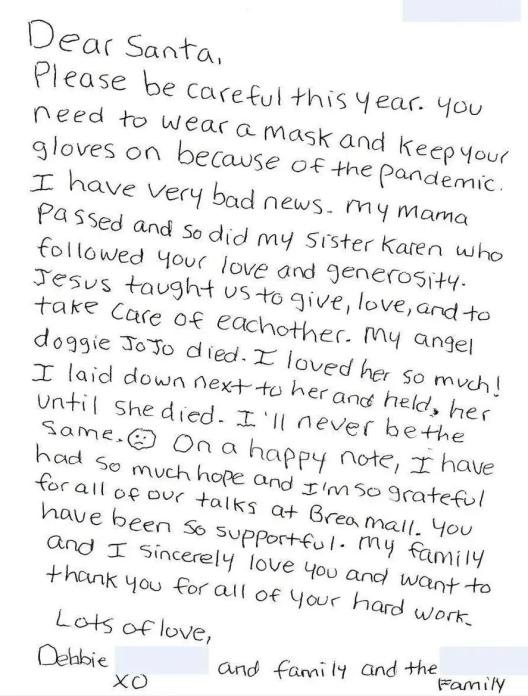 Dear Santa,
Please be careful this year. you
need to wear a mask and keep your
gloves on because of the pandemic.
I have very bad news. my mama
passed and so did my sister Karen who
followed your love and generosity.
Jesus taught us to give, love, and to
take care of eachother. my angel
doggie JoJo died. I loved her so much!
I laid down next to her and held, her
until she died. I'll never be the
same. ☹ On a happy note, I have
had so much hope and I'm so grateful
for all of our talks at Brea mall. you
have been so supportful. my family
and I sincerely love you and want to
thank you for all of your hard work.
Lots of love,
Debbie and family and the
XO Family